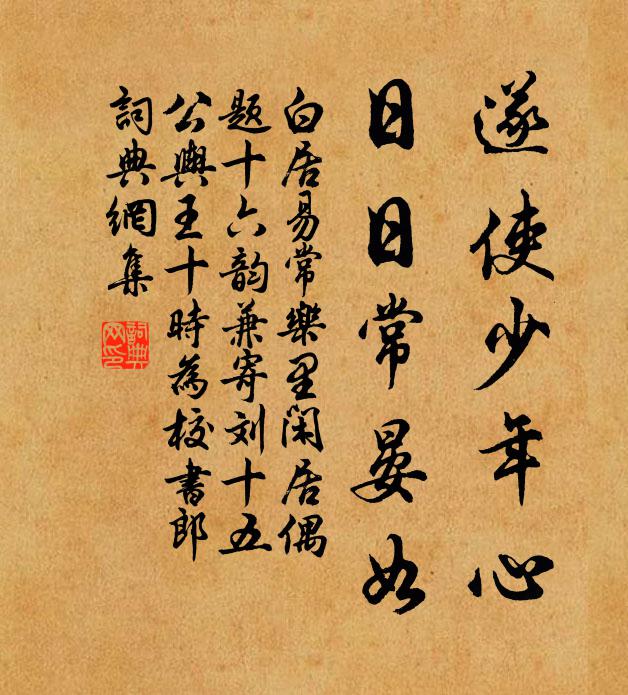 遂使少年心
日日常晏如
白居易常樂里闲居偶
题十六韵兼寄刘十五
公輿王十時為校書郎
詞典網集
詞典網印